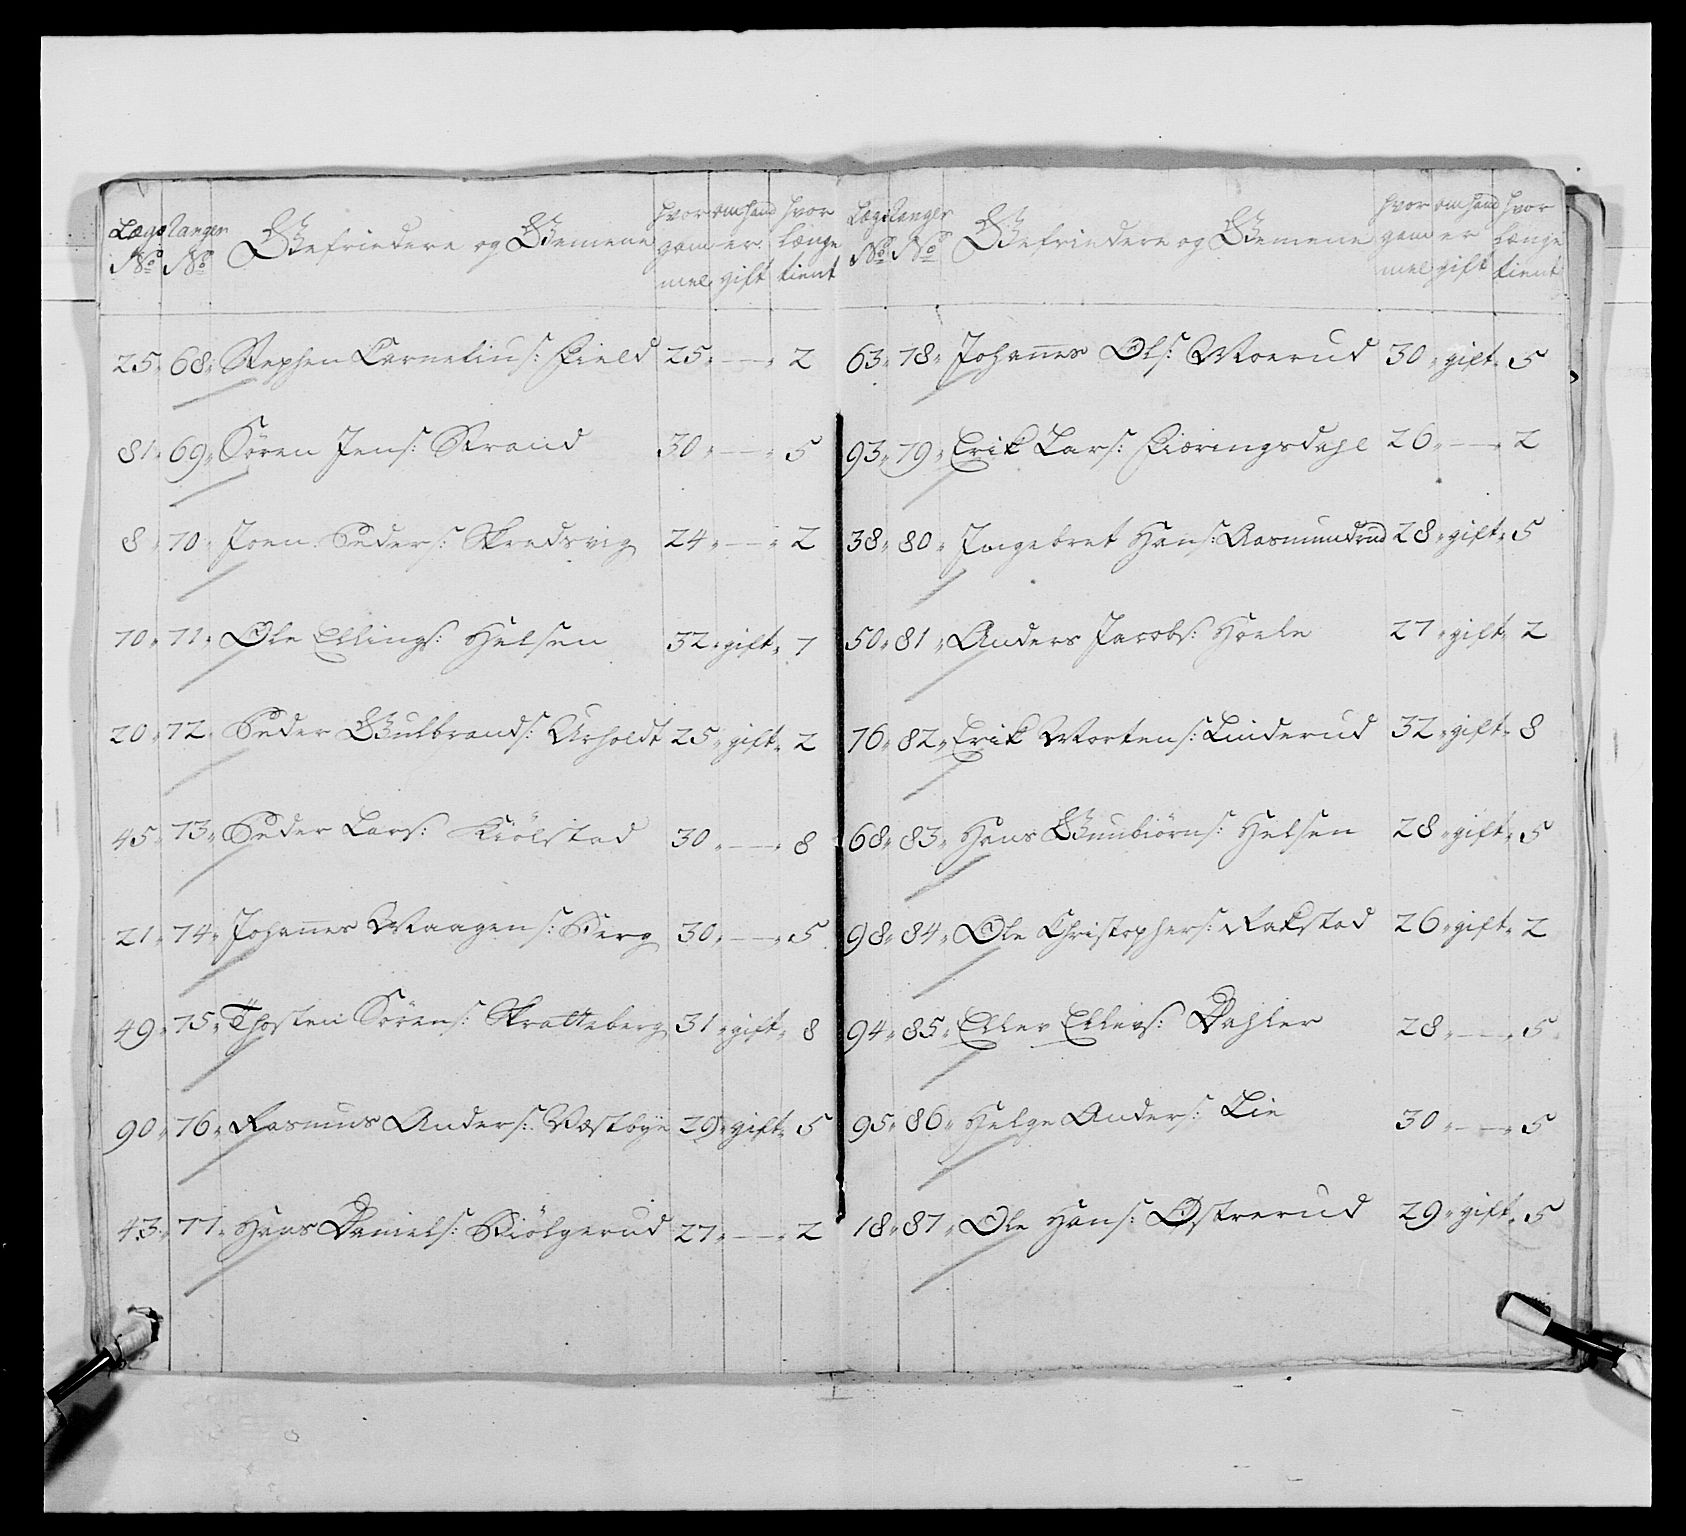 Lægs No Ranger No Gefriedere og Gemene hvor gam mel om hand er gift hvor længe tient
25. 68. Stephen Cornelius: Field 25. — 2
81. 69. Sören Jens: Strand 30. — 5
8. 70. Joen Peders: Skredsvig 24. — 2
70. 71. Ole Ellings: Helsen 32. gift. 7
20. 72. Peder Gulbrands: Urholdt 25. gift. 2
45. 73. Peder Lars: Kiölstad 30. — 8
21. 74. Johannes Maagens: Berg 30. — 5
49. 75. Thosten Sörens: Skratteberg 31. gift. 8
90. 76. Rasmus Anders: Væstbye 29. gift. 5
43. 77. Hans Daniels: Skiölgerud 27. — 2
Lægs No Ranger No Gefriedere og Gemene hvor gam mel om hand er gift hvor længe tient
63. 78. Johannes Ols: Moerud 30. gift. 5
93. 79. Erik Lars: Fiæringsdahl 26. — 2
38. 80. Ingebret Hans: Aasmundrud 28. gift. 5
50. 81. Anders Jacobs: Hoele 27. gift. 2
76. 82. Erik Mortens: Linderud 32. gift. 8
68. 83. Hans Gunbiörns: Helsen 28. gift. 5
98. 84. Ole Christophers: Rakstad 26. gift. 2
94. 85. Ellev Ellevs: Dahler 28. — 5
95. 86. Helge Anders: Lie 30. — 5
18. 87. Ole Hans: Østrerud 29. gift. 5